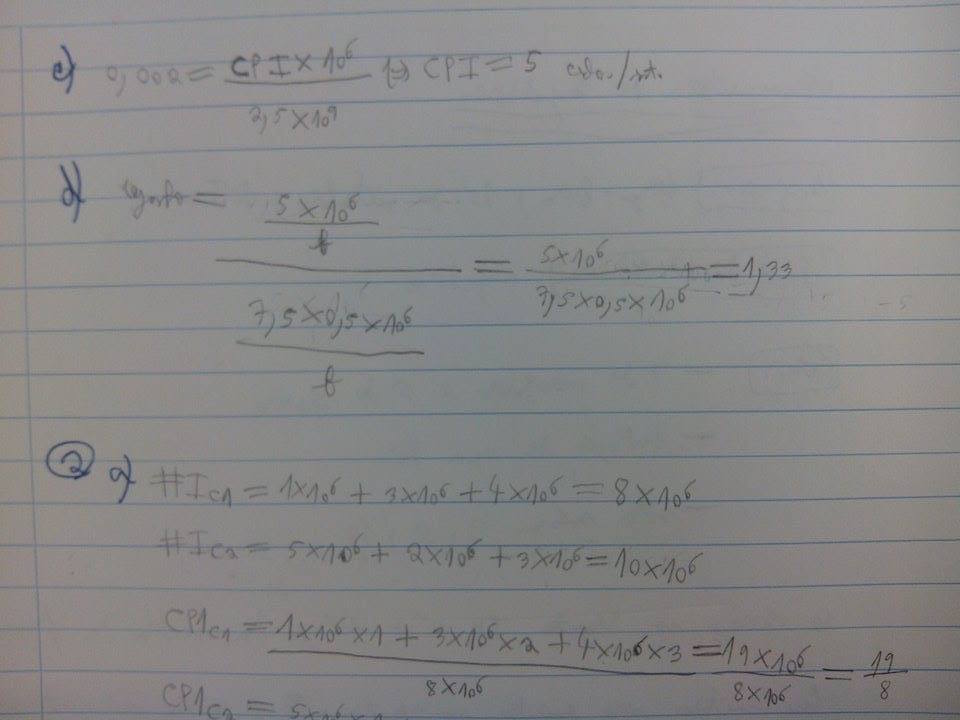 c) 0,002 = CPI×10⁶ / 2,5×10⁹ (=) CPI = 5
d) = 5×10⁶ / f / 7,5×0,5×10⁶ / f = 5×10⁶ / 7,5×0,5×10⁶ = 1,33
② a) #I_C1 = 1×10⁶ + 3×10⁶ + 4×10⁶ = 8×10⁶
#I_C2 = 5×10⁶ + 2×10⁶ + 3×10⁶ = 10×10⁶
CPI_C1 = 1×10⁶×1 + 3×10⁶×2 + 4×10⁶×3 / 8×10⁶ = 19×10⁶ / 8×10⁶ = 19 / 8
CPI_C2 = 5×10⁶×1